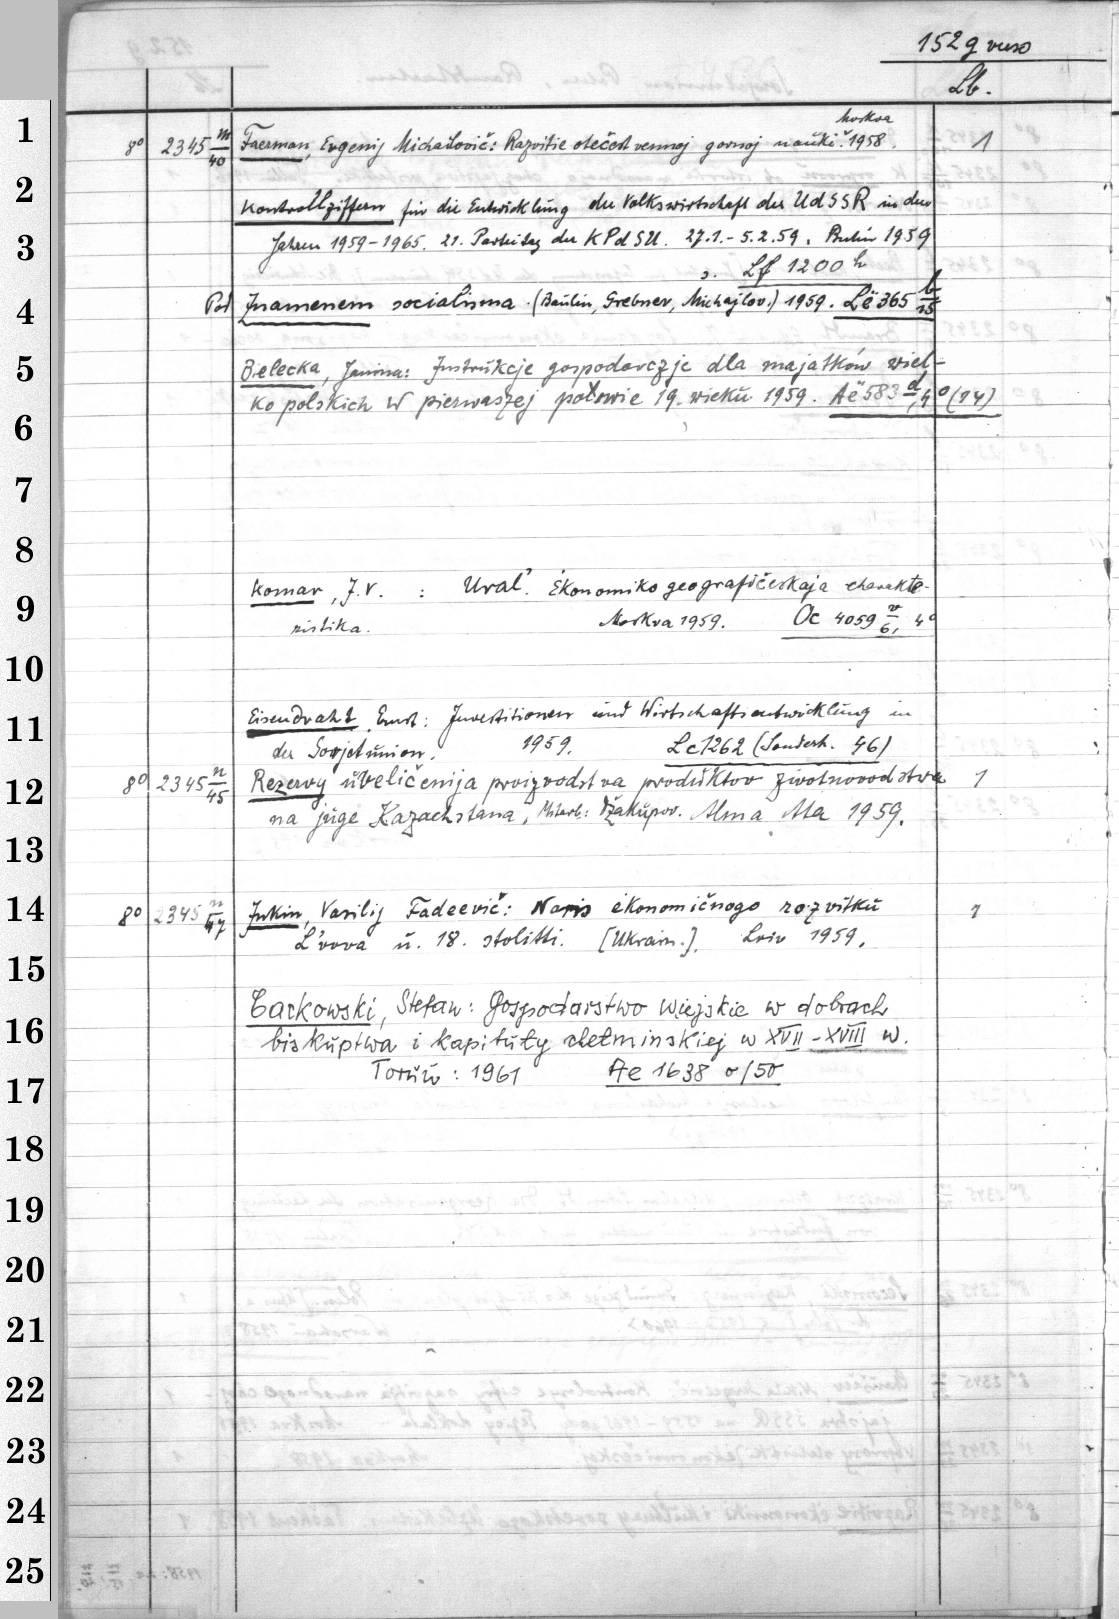 152 g verso
Lb.
Moskva
8° 2345 m/40 Faerman, Evgenij Michailovič: Razvitie otečestvennoj gornoj nauki. 1958. 1
Kontrollziffern für die Entwicklung der Volkswirtschaft der UdSSR in den
Jahren 1959-1965. 21. Parteitag der KPdSU. 27.1.-5.2.59. Berlin 1959
Lf 1200 h
Pod Znamenem socialisma. (Baulin, Grebnev, Michajlov.) 1959. Lë 365 b/15
Bielecka, Janina: Instrukcje gospodarczje dla majatków wiel-
kopolskich w pierwaszej połowie 19. wieku 1959. Aë 583 d/, 4° (14)
Komar, J.V. : Ural'. Ėkonomiko geografičeskaja charakte-
ristika. Moskva 1959. Oc 4059 v/6, 4°
Eisendraht, Ernst: Investitionen und Wirtschaftsentwicklung in
der Sowjetunion. 1959. Lc 1262 (Sonderh. 46)
8° 2345 n/45 Rezervy uveličenija proizvodstva produktov životnovodstva 1
na juge Kazachstana, Mitarb: Džakupov. Alma Ata 1959.
8° 2345 n/47 Inkin, Vasilij Fadeevič: Naris ekonomičnogo rozvitku 1
L'vova u. 18. stolitti. [Ukrain.]. Lviv 1959.
Cackowski, Stefan: Gospodarstwo wiejskie w dobrach
biskuptwa i kapituły chełminskiej w XVII-XVIII w.
Toruń: 1961 Ae 1638 o/50
1
2
3
4
5
6
7
8
9
10
11
12
13
14
15
16
17
18
19
20
21
22
23
24
25